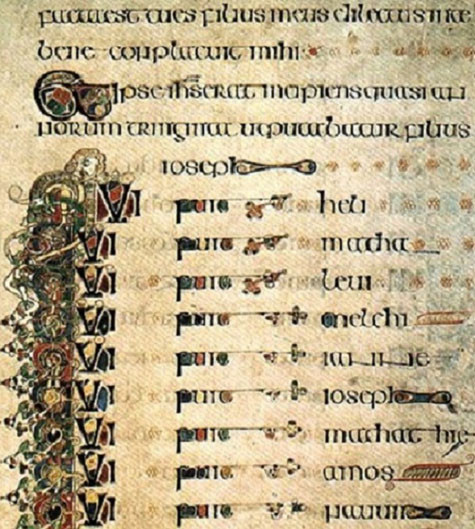 facta est tu es filius meus dilectus in te
bene conplacuit mihi
Et ipse ihs erat incipiens quasi an
norum triginta ut putabatur filius
ioseph
QUI fuit heli
QUI fuit mathat
QUI fuit leui
QUI fuit melchi
QUI fuit iannae
QUI fuit ioseph
QUI fuit mathathie
QUI fuit amos
QUI fuit nauum